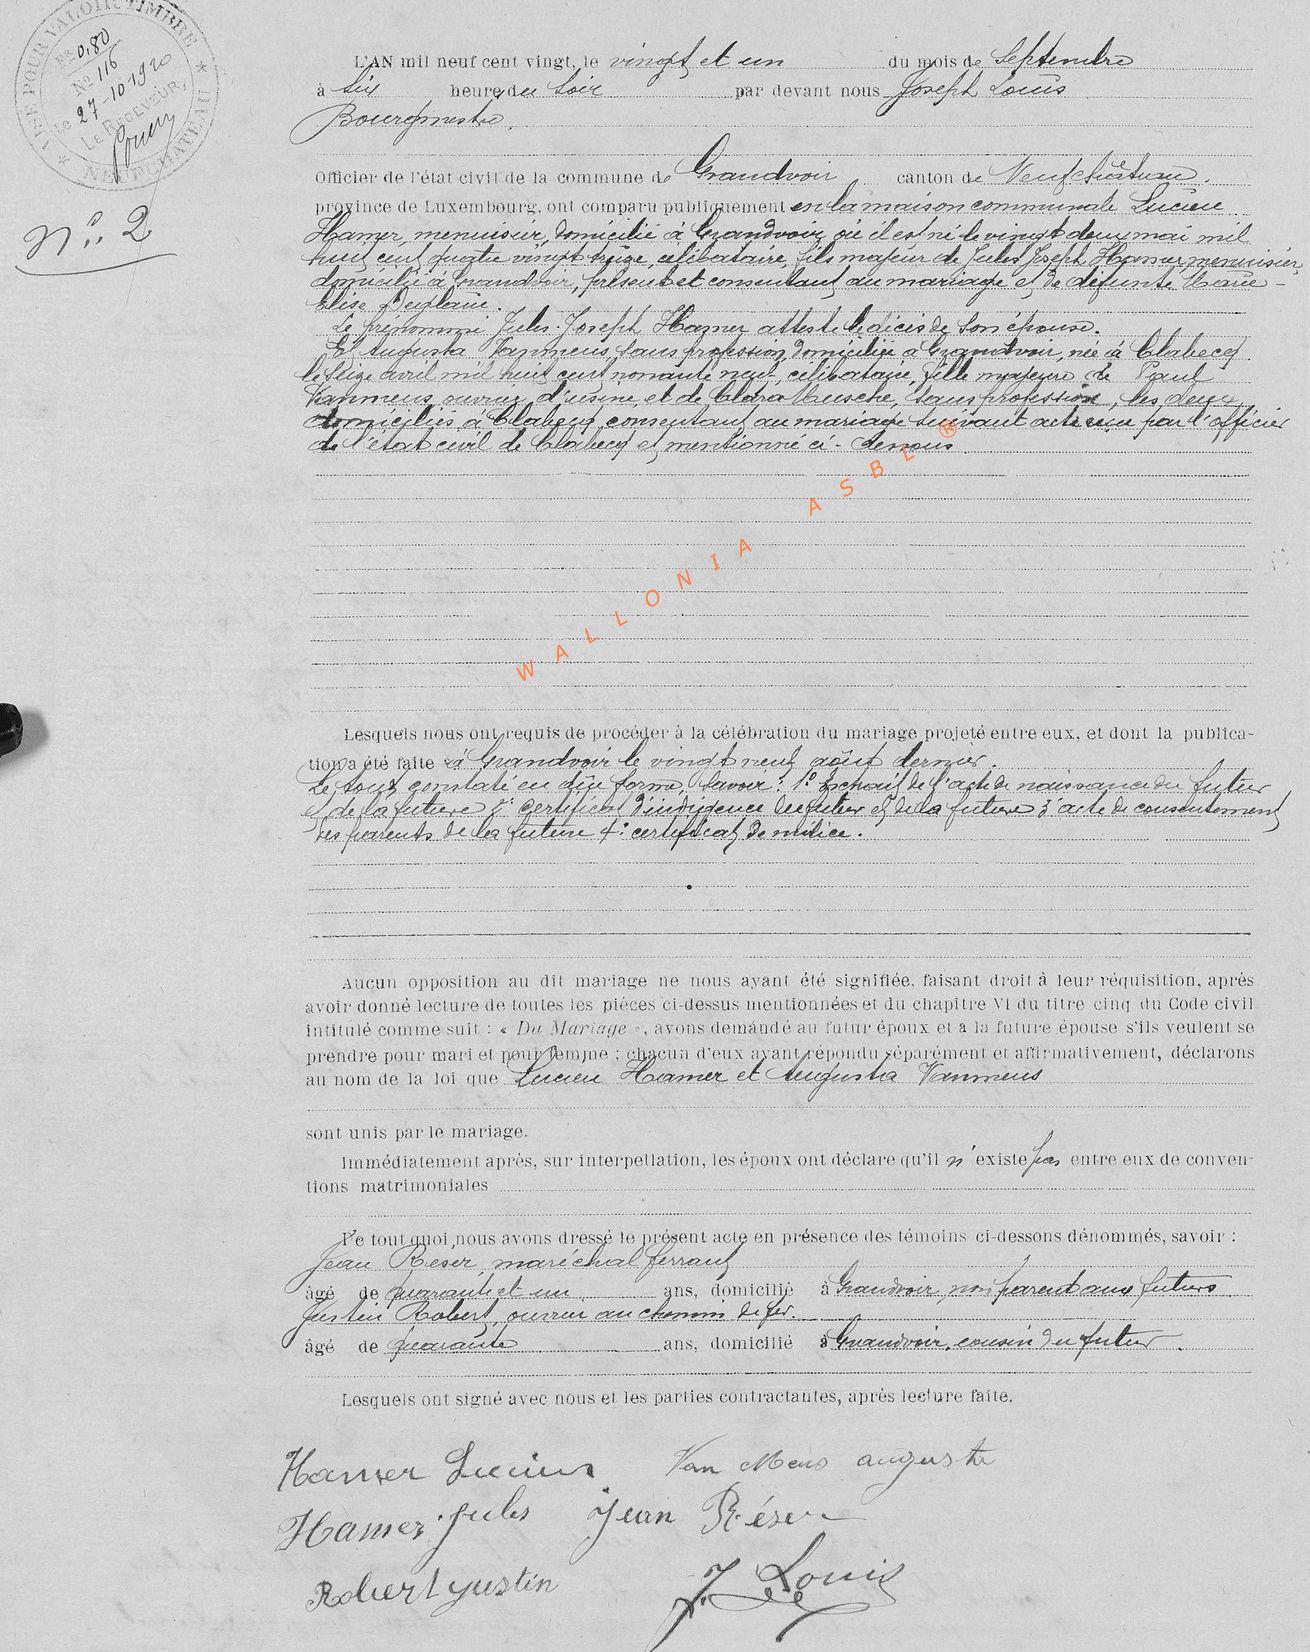 VISÉ POUR VALOIR TIMBRE
Fr 0,80
No 116
le 27-10-1920
LE RECEVEUR,
NEUFCHATEAU
No. 2
L'AN mil neuf cent vingt, le vingt et un du mois de Septembre
à six heure du soir par devant nous Joseph Louis
Bourgmestre,
Officier de l'état civil de la commune de Grandvoir canton de Neufchâteau.
province de Luxembourg, ont comparu publiquement en la maison communale Lucien
Hamer, menuisier, domicilié à Grandvoir où il est né le vingt deux mai mil
huit cent quatre vingt treize, célibataire, fils majeur de Jules Joseph Hamer, menuisier,
domicilié à Grandvoir, présent et consentant au mariage et de défunte Marie-
Elise
Le prénommé Jules-Joseph Hamer atteste le décès de son épouse.
Et Augusta Vanmeus, sans profession, domiciliée à Grandvoir, née à Clabecq
le seize avril mil huit cent nonante neuf, célibataire, fille majeure de Paul
Vanmeus, ouvrier d'usine, et de Clara Musche, sans profession, les deux
domiciliés à Clabecq, consentant au mariage suivant acte reçu par l'officier
de l'état civil de Clabecq et mentionné ci-dessous.
WALLONIA ASBL ®
Lesquels nous ont requis de procéder à la célébration du mariage projeté entre eux, et dont la publica-
tion a été faite à Grandvoir le vingt neuf août dernier.
Le tout constaté en due forme, savoir : 1° Extrait de l'acte de naissance du futur
et de la future 2° certificat d'indigence du futur et de la future 3° acte de consentement
des parents de la future 4° certificat de milice.
Aucun opposition au dit mariage ne nous ayant été signifiée, faisant droit à leur réquisition, après
avoir donné lecture de toutes les pièces ci-dessus mentionnées et du chapitre VI du titre cinq du Code civil
intitulé comme suit : « Du Mariage », avons demandé au futur époux et à la future épouse s'ils veulent se
prendre pour mari et pour femme ; chacun d'eux ayant répondu séparément et affirmativement, déclarons
au nom de la loi que Lucien Hamer et Augusta Vanmeus
sont unis par le mariage.
Immédiatement après, sur interpellation, les époux ont déclare qu'il n'existe pas entre eux de conven-
tions matrimoniales
De tout quoi nous avons dressé le présent acte en présence des témoins ci-dessons dénommés, savoir :
Jean Réser, maréchal ferrant
âgé de quarante et un ans, domicilié à Grandvoir, non parent aux futurs
Justin Robert, ouvrier au chemin de fer.
âgé de quarante ans, domicilié à Grandvoir, cousin du futur.
Lesquels ont signé avec nous et les parties contractantes, après lecture faite.
Hamer Lucien Van Meus augusta
Hamer Jules Jean Réser
Robert Justin J. Louis